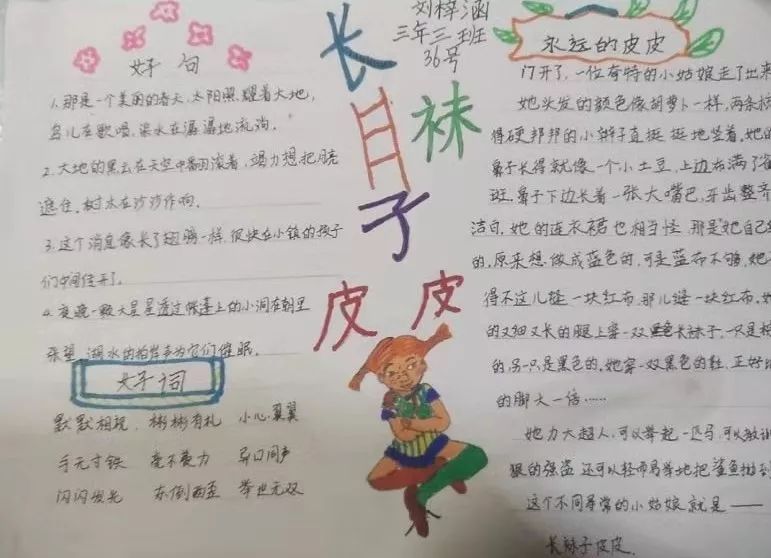 刘梓涵
三年三班
36号
长袜子皮皮
好句
1.那是一个美丽的春天,太阳照耀着大地,
鸟儿在歌唱,溪水在潺潺地流淌。
2.大地的黑云在天空中翻滚着,竭力想把月亮
遮住,树木在沙沙作响。
3.这个消息像长了翅膀一样,很快在小镇的孩子
们中间传开了。
4.夜晚一颗大星星透过帐篷上的小洞在朝里
张望,湖水的拍岸声为它们催眠。
好词
默默相视 彬彬有礼 小心翼翼
手无寸铁 毫不费力 异口同声
闪闪发光 东倒西歪 举世无双
永远的皮皮
门开了,一位奇特的小姑娘走了出来
她头发的颜色像胡萝卜一样,两条
得硬邦邦的小辫子直挺挺地竖着,她的
鼻子长得就像一个小土豆,上边布满了雀
斑.鼻子下边长着一张大嘴巴,牙齿整齐
洁白,她的连衣裙也相当怪,那是她自己
的,原来想做成蓝色的,可是蓝布不够,她
得不这儿缝一块红布,那儿缝一块红布,她
的又细又长的腿上穿一双长袜子,一只是棕
的,另一只是黑色的,她穿一双黑色的鞋,正好比
的脚大一倍……
她力大超人,可以举起一匹马,可以教训
狠的强盗,还可以轻而易举地把鲨鱼抛到
这个不同寻常的小姑娘就是——
长袜子皮皮.